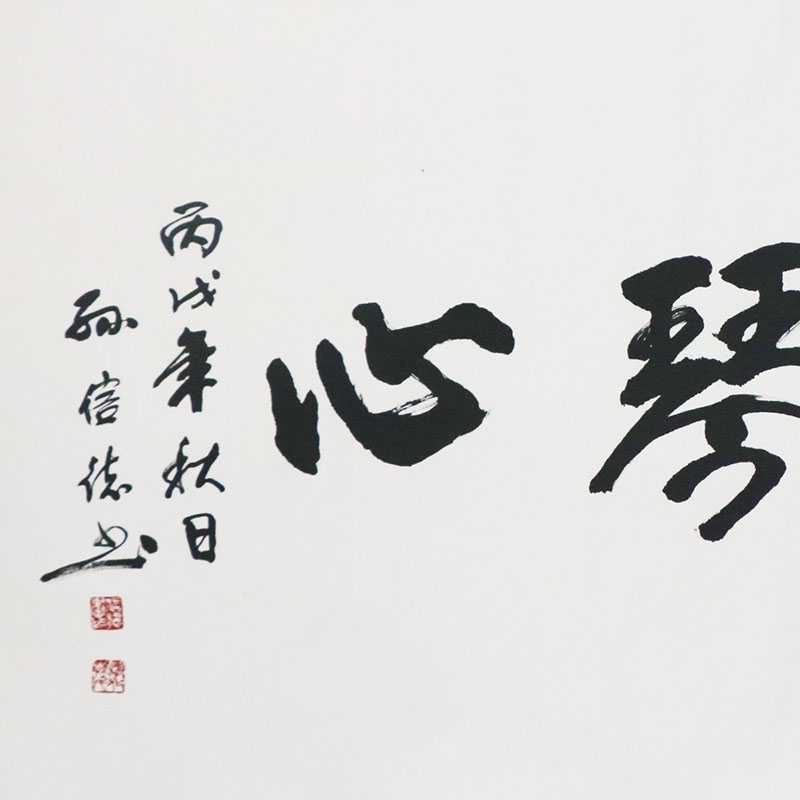 琴心
丙戌年秋日
孙信德书